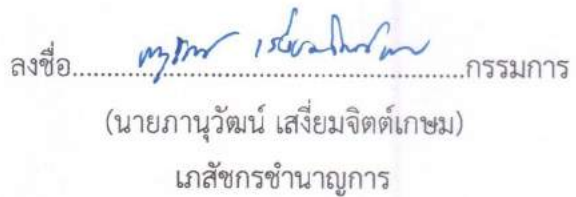 ลงชื่อ................................................................กรรมการ
(นายภานุวัฒน์ เสงี่ยมจิตต์เกษม)
เภสัชกรชำนาญการ